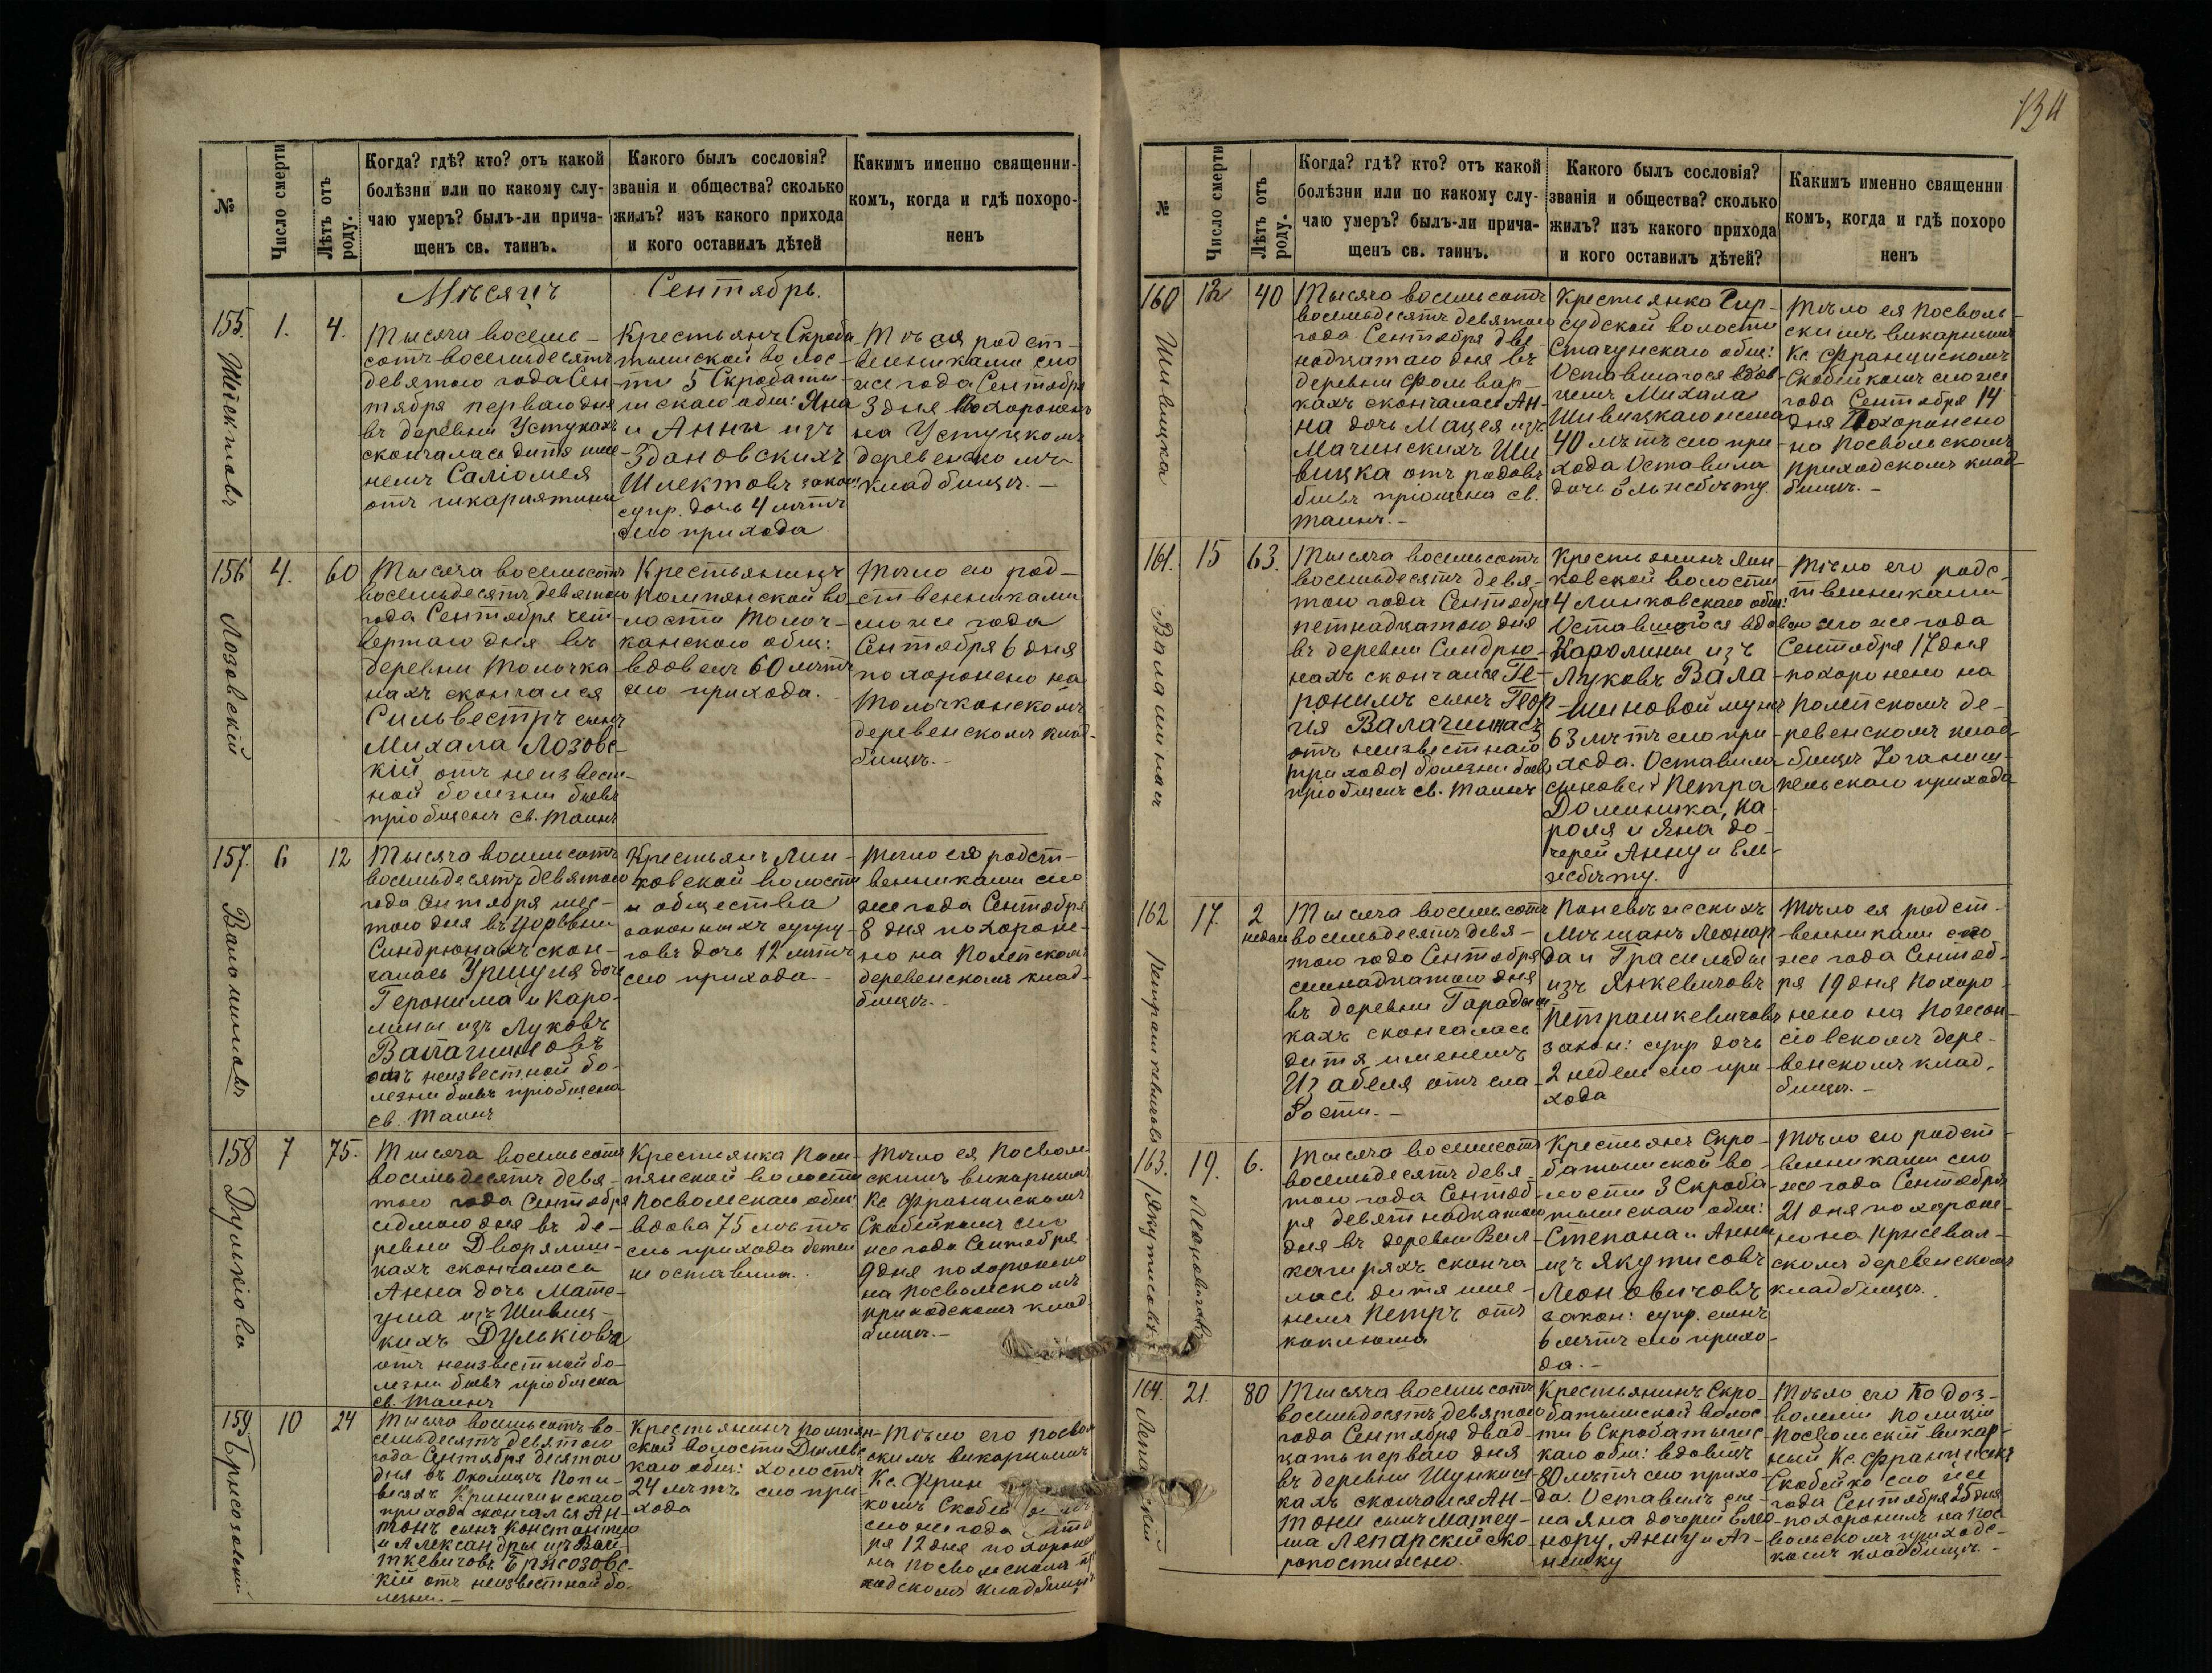 №
Число смерти
Лѣтъ отъ роду.
Когда? гдѣ? кто? отъ какой
болѣзни или по какому слу-
чаю умеръ? былъ-ли прича-
щенъ св. таинъ.
Какого былъ сословія?
званія и общества? сколько
жилъ? изъ какого прихода
и кого оставилъ дѣтей
Какимъ именно священни-
комъ, когда и гдѣ похоро-
ненъ
Мѣсяцъ
Сентябрь.
155.
1.
4.
Тысяча восемь-
сотъ восемьдесятъ
девятого года Сен-
тября перваго дня
въ деревни Устуках
скончалась дитя име-
немъ Саліомея
отъ шкарлятины
Крестьянъ Скроба
тышской волос-
ти 5 Скробаты-
шскаго общ: Яна
и Анны изъ
Здановскихъ
закон
супр. дочь 4 лѣтъ
сего прихода
родст-
венниками сего
же года Сентября
3 дня Похоронено
на Устуцкомъ
деревенско мъ
кладбищѣ.-
156
Лозовскій
4.
60
Тысяча восемьсотъ
восемьдесятъ девятого
года Сентября чет
вертаго дня въ
деревни Толочка-
нахъ скончался
Сильвестръ сынъ
Михала Лозовс-
кій отъ неизвест-
ной болезни бывъ
пріобщенъ св. Таинъ
Крестьянинъ
Помпянской во-
лости Толоч-
канскаго общ:
вдовецъ 60 лѣтъ
сего прихода.
Тѣло его род-
ственниками
сего же года
Сентября 6 дня
похоронено на
Толочканскомъ
деревенскомъ клад-
бищѣ.-
157.
6
12
Тысяча восемьсотъ
восемьдесятъ девятого
года Сентября шес-
того дня въ деревни
Синдрюнахъ скон-
чалась Уршуля дочь
Геронима и Каро-
лины изъ Луковъ
отъ неизвестной бо-
лезни бывъ пріобщена
св. Таинъ
Крестьянъ Лин-
ковской волости
и общества
законныхъ супру-
говъ дочь 12 лѣтъ
сего прихода.-
Тѣло его родст-
венниками сего
же года Сентября
8 дня похороне-
но на
деревенскомъ клад-
бищѣ.-
158
Дулькіова
7
75.
Тысяча восемьсотъ
восемьдесятъ девя-
того года Сентября
седмого дня въ де-
ревни Дворялиш-
кахъ скончалась
Анна дочь Мате-
уша изъ Шивиц-
кихъ Дулькіова
отъ неизвестной бо-
лезни бывъ пріобщена
св. Таинъ
Крестьянка Пом-
пянской волости
Посвольскаго общ:
вдова 75 лѣтъ
сего прихода детей
не оставила.
Тѣло ея Посволь
скимъ викарнымъ
Кс Францискомъ
Скабейкомъ сего
же года Сентября
9 дня похоронено
на Посвольскомъ
приходскомъ клад
бищѣ.-
159.
10
24
Тысяча восемьсотъ во-
семьдесятъ девятого
года Сентября десятого
дня въ Околицѣ
прихода скончался Ан-
тонъ сынъ Константина
и Александры изъ Вой-
ткевичовъ Бржозовс-
кій отъ неизвестной бо-
лезни.-
Крестьянинъ Помпян-
ской волости
каго общ: холостъ
24 лѣтъ сего при-
хода
Тѣло его Посволь
скимъ викарнымъ
Кс. Фран
комъ Скабей
сего же года
ря 12 дня похоронено
на Посвольскомъ при
ходскомъ кладбищѣ
134
№
Число смерти
Лѣтъ отъ роду.
Когда? гдѣ? кто? отъ какой
болѣзни или по какому слу-
чаю умеръ? былъ-ли прича-
щенъ св. таинъ.
Какого былъ сословія?
званія и общества? сколько
жилъ? изъ какого прихода
и кого оставилъ дѣтей?
Какимъ именно священни
комъ, когда и гдѣ похоро
ненъ
160
Шивицка
12
40
Тысяча восемьсотъ
восемьдесятъ девятого
года Сентября две-
надцатого дня въ
деревни Фольвар-
кахъ скончалась Ан-
на дочь Мацея изъ
Мачинскихъ Ши
вицка отъ родовъ
бывъ пріобщена св.
Таинъ.-
Крестьянка Гир-
судской волости
Стачунскаго общ:
Оставшагося вдов-
цемъ Михала
Шивицкаго жена
40 лѣтъ сего при
хода Оставила
дочь Эльжбѣту.
Тѣло ея Посволь-
скимъ викарнымъ
Кс Францискомъ
Скабейкомъ сего же
года Сентября 14
дня Похоронено
на Посвольскомъ
приходскомъ клад-
бищѣ.-
161.
Валаминасъ
15
63.
Тысяча восемьсотъ
восемьдесятъ девя-
того года Сентября
петнадцатого дня
въ деревни Синдрю-
нахъ скончался Ге-
ронимъ сынъ Геор-
гія
отъ неизвестнаго
прихода болезни бывъ
пріобщенъ св. Таинъ
Крестьянинъ Лин-
ковской волости
4 Линковскаго общ:
Оставшогося вдовою
Каролины изъ
Луковъ Вала-
миновой мужъ
63 лѣтъ сего при
хода. Оставилъ
сыновей Петра
Доминика, Ка
роля и Яна до-
черей Анну и Ель-
жбѣту.
Тѣло его родс-
твенниками
сего же года
Сентября 17 дня
похоронено на
де-
ревенскомъ клад-
бищѣ Іоганиш-
кельскаго прихода
162
Петрашкевичовъ
17.
2
недели
Тысяча восемьсотъ
восемьдесятъ девя-
того года Сентября
семнадцатого дня
въ деревни
кахъ скончалась
дитя именемъ
Изабеля отъ сла-
бости.-
Поневѣжескихъ
Мѣщанъ Леонар-
да и Грасильды
изъ Янкевичовъ
Петрашкевичовъ
закон: супр дочь
2 недели сего при
хода
Тѣло ея родст-
венниками сего
же года Сентяб-
ря 19 дня Похоро-
нено на
дере-
венскомъ клад.
бищѣ.-
163.
19.
6.
Тысяча восемьсотъ
восемьдесятъ девя
того года Сентяб-
ря девятнадцатого
дня въ деревни Вил-
сконча
лось дитя име-
немъ Петръ отъ
коклюша
Крестьянъ Скро-
батышской во-
лости 3 Скроба-
тышскаго общ:
Степана и Анны
изъ Якутисовъ
Леоновичовъ
закон: супр. сынъ
6 лѣтъ сего прихо-
да.-
Тѣло его родст-
венниками сего
же года Сентября
21 дня похороне-
но на
скомъ деревенскомъ
кладбищѣ.
164.
21.
80
Тысяча восемьсотъ
восемьдесятъ девятого
года Сентября двад-
цать перваго дня
въ деревни
кахъ скончался Ан-
тони сынъ Матеу-
ша Лепарскій ско-
ропостижно.
Крестьянинъ Скро-
батышской волос-
ти 6 Скробатышс-
каго общ: вдовецъ
80 лѣтъ сего прихо-
да. Оставилъ сы-
на Яна дочерей Елео-
нору, Анну и Аг-
нешку
Тѣло его по доз-
воленію полиціи
Посвольскій викар-
ный Кс. Францискъ
Скабейко сего же
года Сентября 25 дня
похоронилъ на Пос-
вольскомъ приходс-
комъ кладбищѣ.-